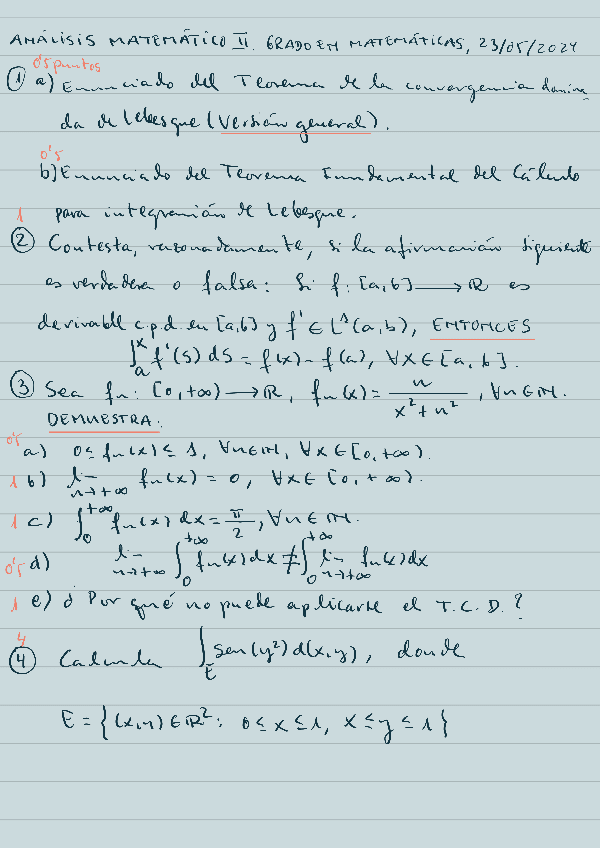 ANÁLISIS MATEMÁTICO II. GRADO EN MATEMÁTICAS, 23/05/2024
0'5 puntos
① a) Enunciado del Teorema de la convergencia domina
da de Lebesgue (Versión general).
0'5
b) Enunciado del Teorema Fundamental del Cálculo
para integración de Lebesgue.
1
② Contesta, razonadamente, si la afirmación siguiente
es verdadera o falsa: Si f: [a,b] → ℝ es
derivable c.p.d. en [a,b] y f' ∈ L¹(a,b), ENTONCES
∫ₐˣ f'(s) ds = f(x) − f(a), ∀x ∈ [a, b].
③ Sea fn: [0,+∞) → ℝ, fn(x) = n/(x²+n²), ∀n∈ℕ.
DEMUESTRA:
0'5 a) 0 ≤ fn(x) ≤ 1, ∀n∈ℕ, ∀x∈[0,+∞).
1 b) lim n→+∞ fn(x) = 0, ∀x∈[0,+∞).
1 c) ∫₀^{+∞} fn(x) dx = π/2, ∀n∈ℕ.
0'5 d) lim n→+∞ ∫₀^{+∞} fn(x) dx ≠ ∫₀^{+∞} lim n→+∞ fn(x) dx
1 e) ¿Por qué no puede aplicarse el T.C.D.?
4
④ Calcula ∫_E sen(y²) d(x,y), donde
E = {(x,y) ∈ ℝ²: 0 ≤ x ≤ 1, x ≤ y ≤ 1}